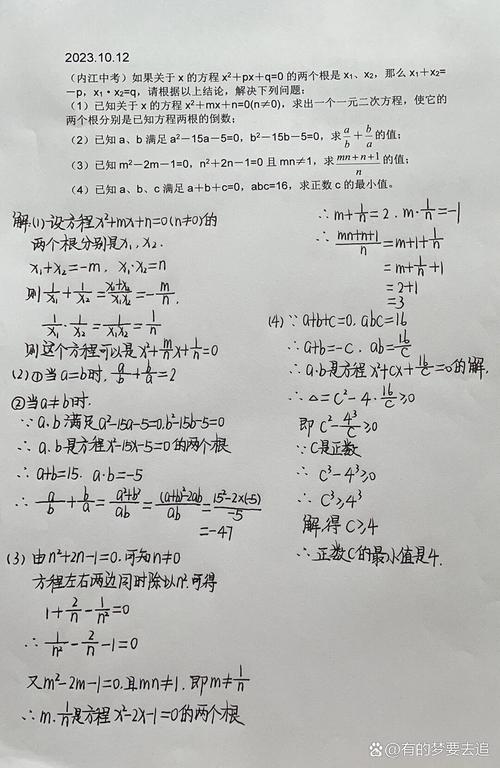 2023.10.12
(内江中考) 如果关于 x 的方程 x²+px+q=0 的两个根是 x₁、x₂，那么 x₁+x₂=
-p，x₁·x₂=q，请根据以上结论，解决下列问题：
(1) 已知关于 x 的方程 x²+mx+n=0(n≠0)，求出一个一元二次方程，使它的
两个根分别是已知方程两根的倒数；
(2) 已知 a、b 满足 a²-15a-5=0，b²-15b-5=0，求 a/b + b/a 的值；
(3) 已知 m²-2m-1=0，n²+2n-1=0 且 mn≠1，求 (mn+n+1)/n 的值；
(4) 已知 a、b、c 满足 a+b+c=0，abc=16，求正数 c 的最小值。
解:(1)设方程x²+mx+n=0(n≠0)的
两个根分别是x₁,x₂.
x₁+x₂=-m, x₁·x₂=n
则 1/x₁+1/x₂=(x₁+x₂)/(x₁x₂)=-m/n,
1/x₁·1/x₂=1/(x₁x₂)=1/n
则这个方程可以是x²+(m/n)x+1/n=0
(2)①当a=b时, a/b+b/a=2
②当a≠b时.
∵a.b满足a²-15a-5=0,b²-15b-5=0
∴a.b是方程x²-15x-5=0的两个根
∴a+b=15. a·b=-5
∴ a/b+b/a=(a²+b²)/ab=((a+b)²-2ab)/ab=(15²-2×(-5))/-5
=-47
(3) 由n²+2n-1=0.可知n≠0
方程左右两边同时除以n².可得
1+2/n-1/n²=0
∴1/n²-2/n-1=0
又m²-2m-1=0.且mn≠1,即m≠1/n
∴m.1/n是方程x²-2x-1=0的两个根
∴m+1/n=2. m·1/n=-1
∴(mn+n+1)/n=m+1+1/n
=m+1/n+1
=2+1
=3
(4)∵a+b+c=0, abc=16
∴a+b=-c. ab=16/c
∴a.b是方程x²+cx+16/c=0的解.
∴△=c²-4·16/c≥0
即c²-4³/c≥0
∵c是正数
∴c³-4³≥0
∴c³≥4³
解得c≥4
∴正数c的最小值是4.
@有的梦要去追